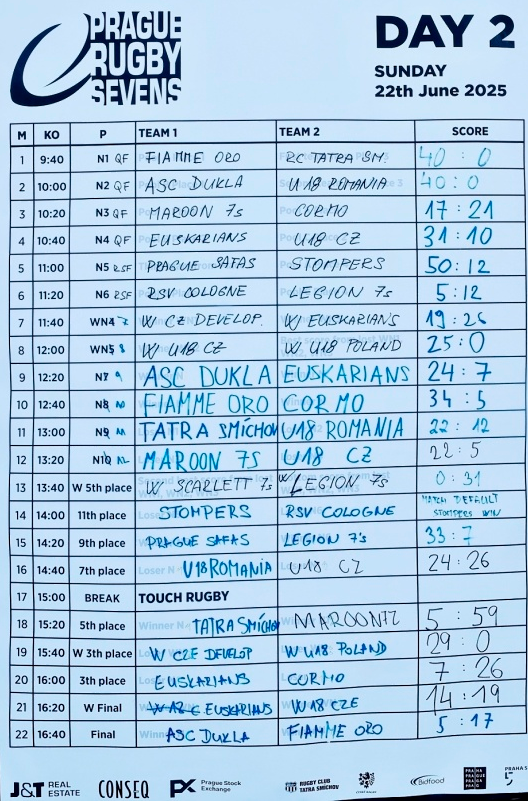 PRAGUE
RUGBY
SEVENS
DAY 2
SUNDAY
22th June 2025
M KO P TEAM 1 TEAM 2 SCORE
1 9:40 N1 QF FIAMME ORO RC TATRA SM. 40 : 0
2 10:00 N2 QF ASC DUKLA U18 ROMANIA 40 : 0
3 10:20 N3 QF MAROON 7s CORMO 17 : 21
4 10:40 N4 QF EUSKARIANS U18 CZ 31 : 10
5 11:00 N5 RSF PRAGUE SAFAS STOMPERS 50 : 12
6 11:20 N6 RSF RSV COLOGNE LEGION 7s 5 : 12
7 11:40 WN4 7 W CZ DEVELOP. W EUSKARIANS 19 : 26
8 12:00 WN5 8 W U18 CZ W U18 POLAND 25 : 0
9 12:20 N7 9 ASC DUKLA EUSKARIANS 24 : 7
10 12:40 N8 10 FIAMME ORO CORMO 34 : 5
11 13:00 N9 11 TATRA SMÍCHOV U18 ROMANIA 22 : 12
12 13:20 N10 12 MAROON 7S U18 CZ 22 : 5
13 13:40 W 5th place W SCARLETT 7s W LEGION 7s 0 : 31
14 14:00 11th place STOMPERS RSV COLOGNE MATCH DEFAULT
STOMPERS WIN
15 14:20 9th place PRAGUE SAFAS LEGION 7's 33 : 7
16 14:40 7th place U18 ROMANIA U18 CZ 24 : 26
17 15:00 BREAK TOUCH RUGBY
18 15:20 5th place TATRA SMÍCHOV MAROON 5 : 59
19 15:40 W 3th place W CZE DEVELOP W U18 POLAND 29 : 0
20 16:00 3th place EUSKARIANS CORMO 7 : 26
21 16:20 W Final EUSKARIANS W U18 CZE 14 : 19
22 16:40 Final ASC DUKLA FIAMME ORO 5 : 17
J&T REAL ESTATE CONSEQ PX Prague Stock Exchange RUGBY CLUB TATRA SMÍCHOV Bidfood PRAHA 5